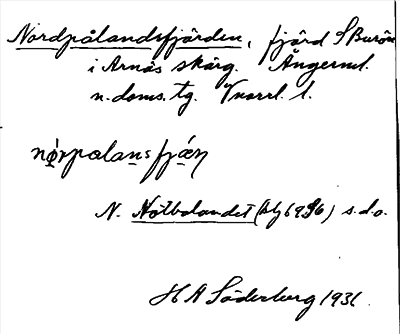 Nordpålandsfjärden, fjärd S Burön
i Arnäs skärg. Ångerml.
n. doms. tg. Vnorrl. l.
nǿrpalansfjǽṇ
N. Nötbolandet (blj 6936) s.d.o.
H A Söderberg 1931.